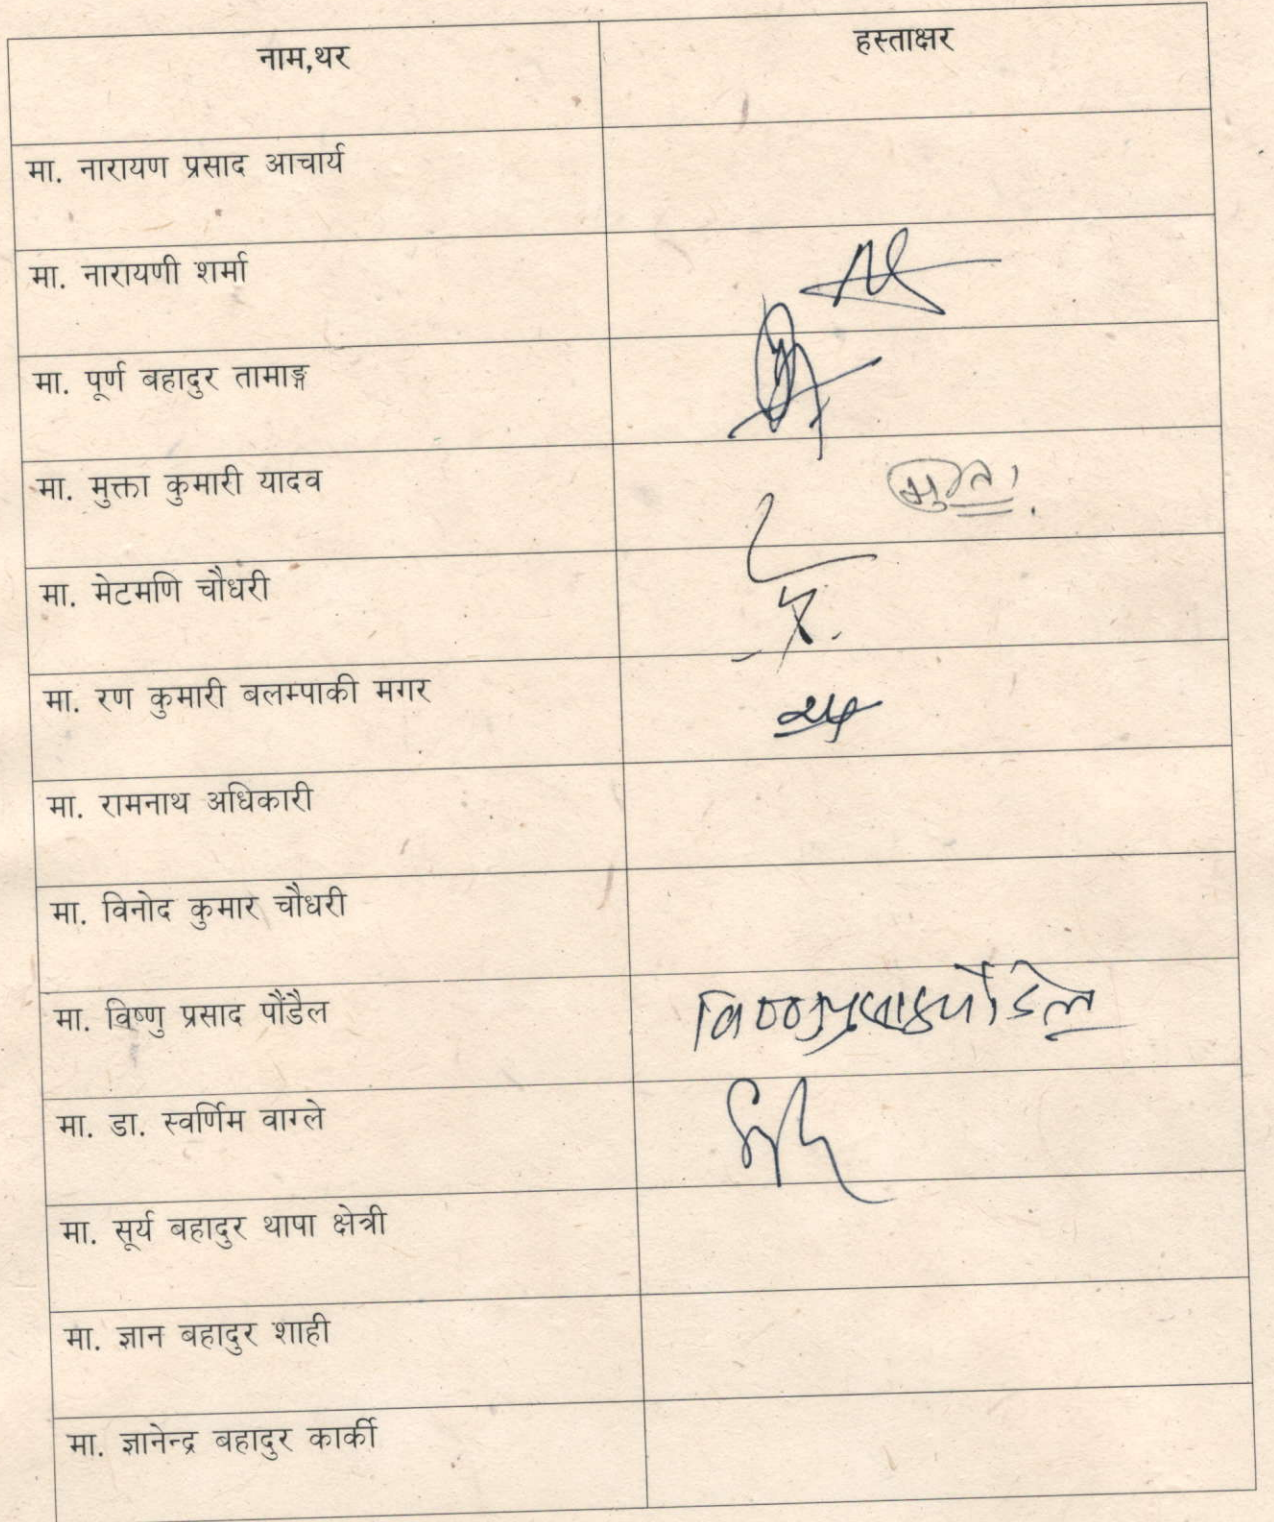 नाम,थर
हस्ताक्षर
मा. नारायण प्रसाद आचार्य
मा. नारायणी शर्मा
मा. पूर्ण बहादुर तामाङ्ग
मा. मुक्ता कुमारी यादव
मा. मेटमणि चौधरी
मा. रण कुमारी बलम्पाकी मगर
मा. रामनाथ अधिकारी
मा. विनोद कुमार चौधरी
मा. विष्णु प्रसाद पौडैल विष्णुप्रसादपौडेल
मा. डा. स्वर्णिम वाग्ले
मा. सूर्य बहादुर थापा क्षेत्री
मा. ज्ञान बहादुर शाही
मा. ज्ञानेन्द्र बहादुर कार्की